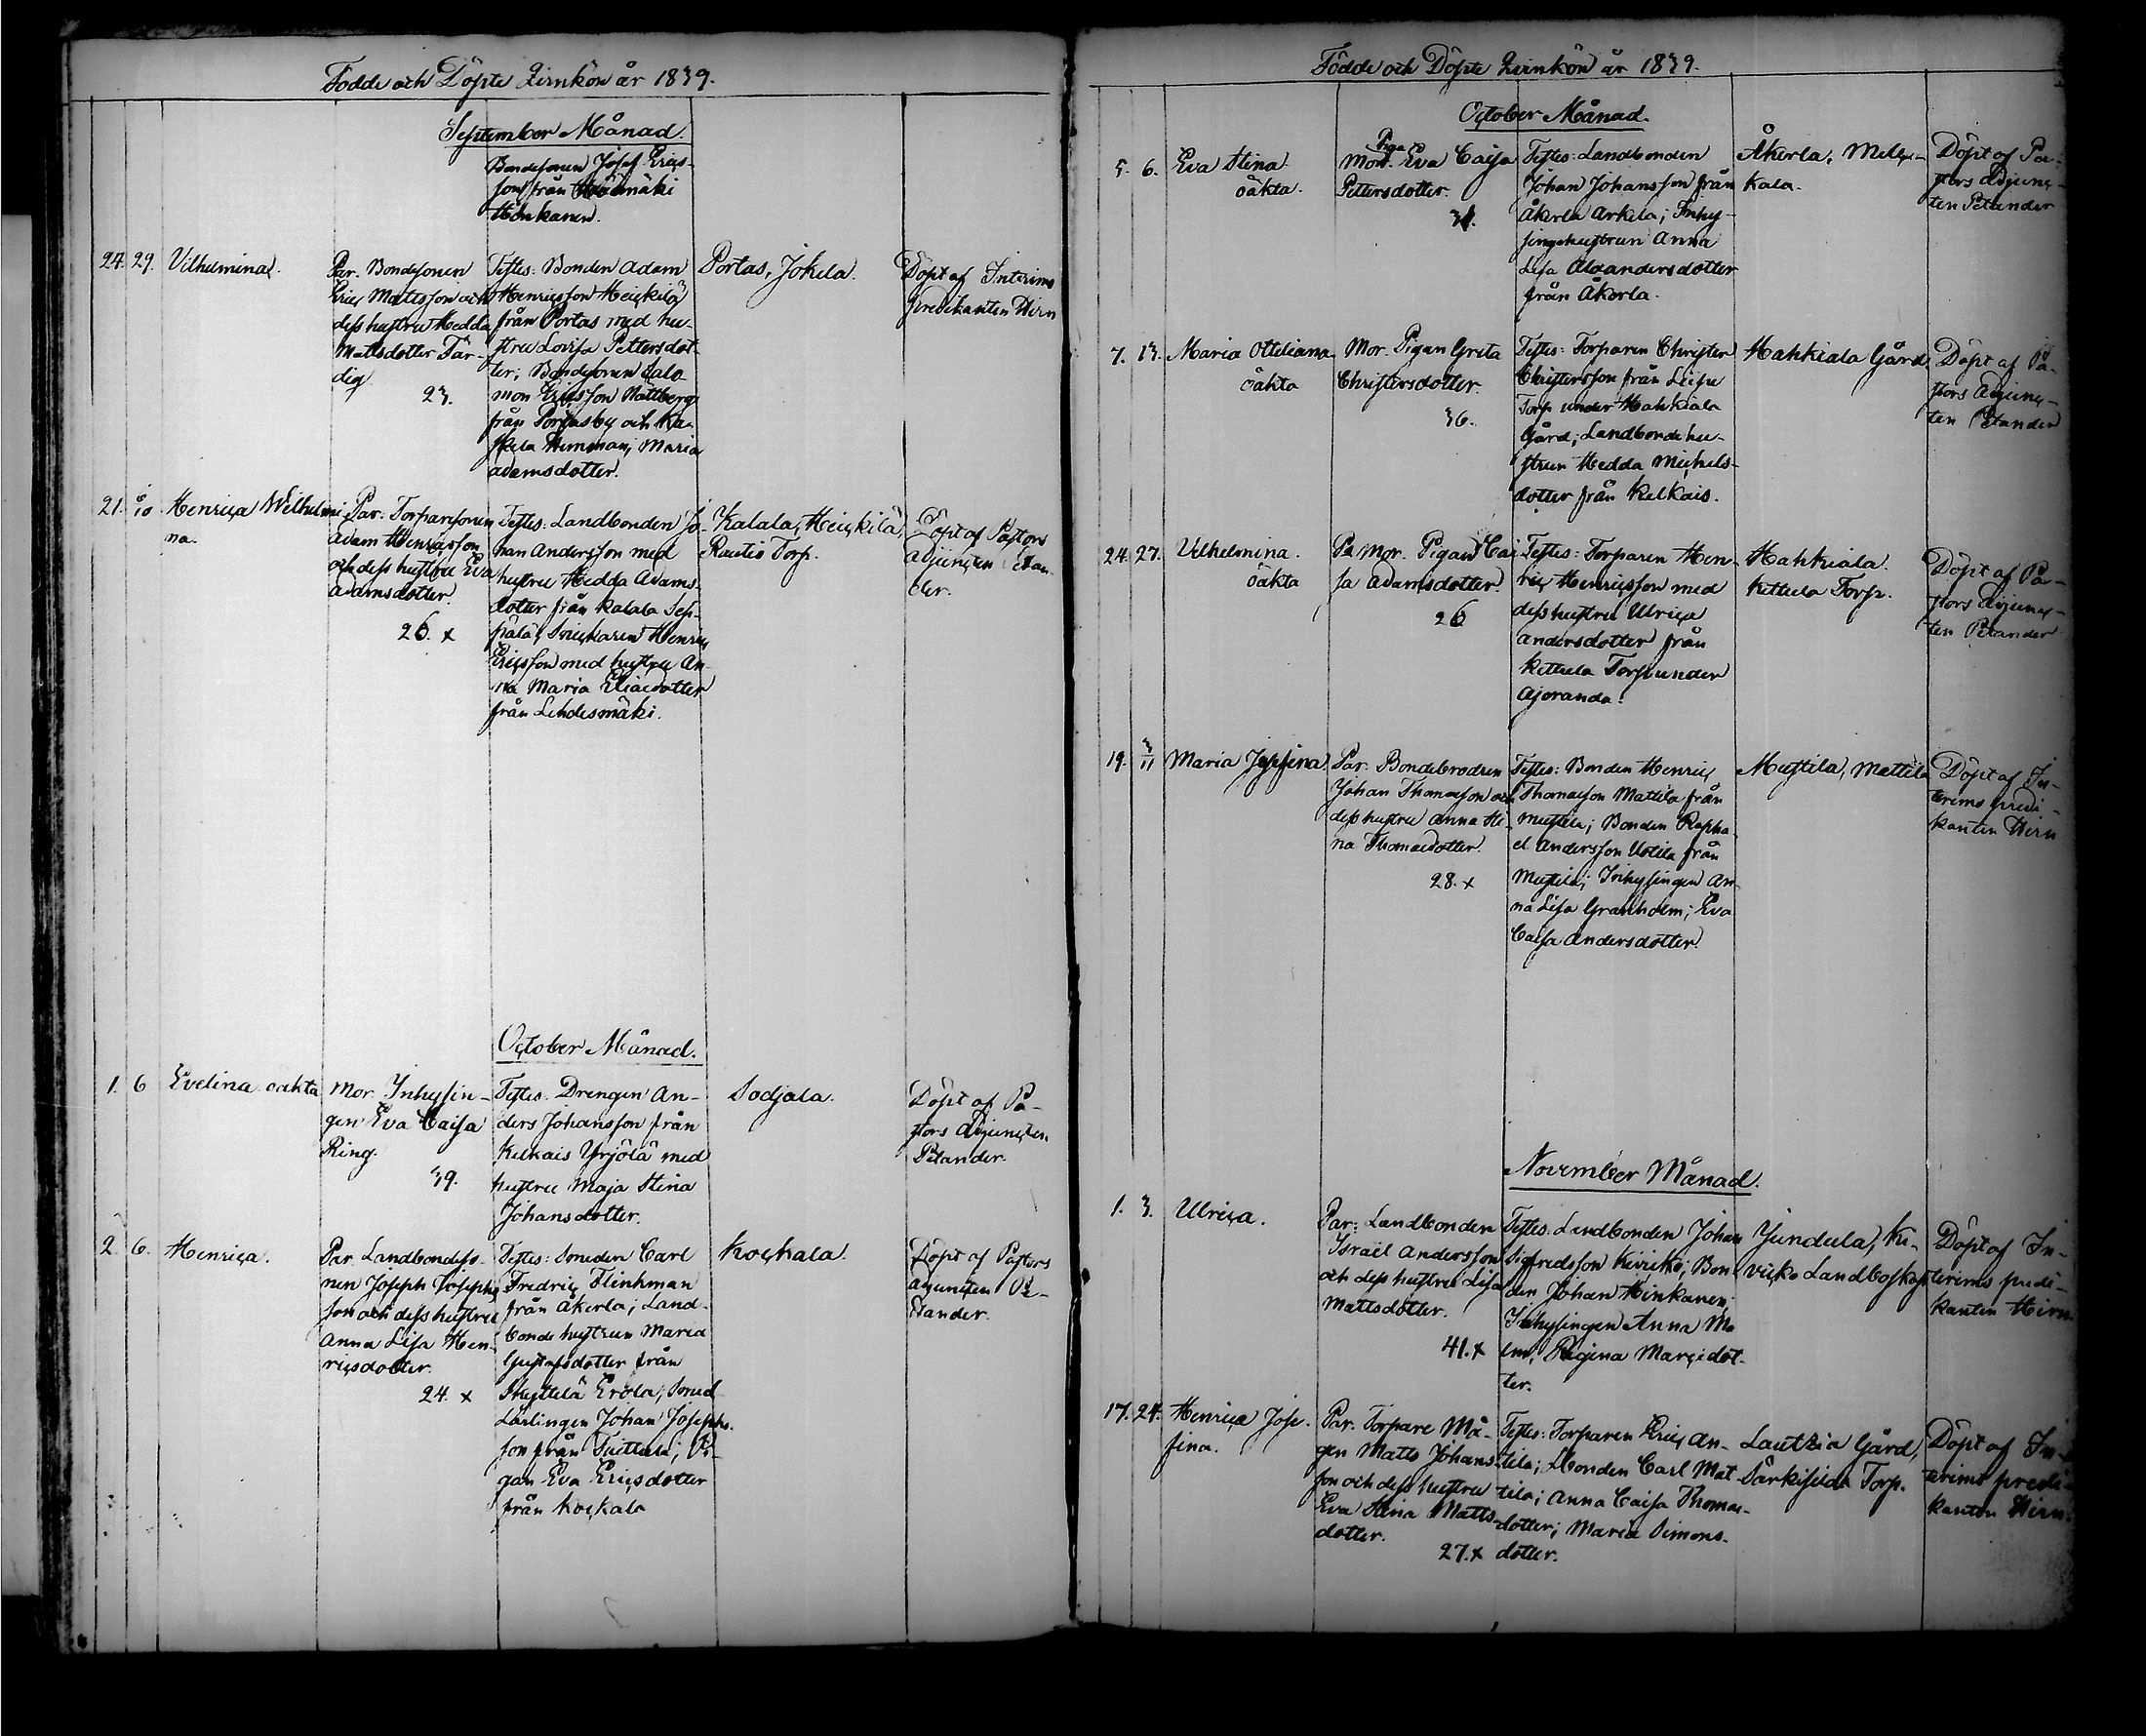 Födde och Döpte Qvinkön år 1839.
September Månad.
Bondesonen Josef Erics-
son från
Honkanen.
24. 29. Vilhelmina.
Par. Bondesonen
Eric Mattsson och
dess hustru Hedda
Mattsdotter Fär-
dig
23.
Testes: Bonden Adam
Henricsson Heickilä
från Portas med hu-
stru Lovisa Pettersdot-
ter; Bondesonen Salo-
mon Ericsson Mattberg
från Portasby och
Hemman; Maria
Adamsdotter.
Portas, Jokela.
Döpt af Interims
Predikanten Hirn
21. 6/10 Henrica Wilhelmi-
na.
Par. Torparesonen
Adam Henricsson
och dess hustru Eva
Adamsdotter.
26. x
Testes: Landbonden Jo-
han Andersson med
hustru Hedda Adams-
dotter från Kalala Sep-
pälä; Snickaren Henric
Ericsson med hustru An-
na Maria Eliaedotter
från Lehdesmäki.
Kalala, Heickilä,
Rautio Torp.
Döpt af Pastors
Adjuncten Petan-
der.
October Månad.
1. 6 Evelina oäkta
Mor. Inhysin-
gen Eva Caisa
Ring.
39.
Testes. Drengen An-
ders Johansson från
Kelkais Yrjölä med
hustru Maja Stina
Johansdotter.
Sodjala.
Döpt af Pa-
stors Adjuncten
Petander.
2. 6. Henrica.
Par. Landbondeso-
nen Joseph Josephs-
son och dess hustru
Anna Lisa Hen-
ricsdotter.
24. x
Testes: Smeden Carl
Fredric Flinkman
från Åkerla; Land-
bonde hustrun Maria
Gustafsdotter från
Skyttelä Erola; Smed
Lärlingen Johan Josephs-
son från Tuittula; Pi-
gan Eva Ericsdotter
från Kockala
Kockala.
Döpt af Pastors
Adjuncten Pe-
tander.
Födde och Döpte Qvinkön år 1839.
October Månad.
5. 6. Eva Stina
oäkta.
Piga
Mor. Eva Caisa
Pettersdotter.
31.
Testes: Landbonden
Johan Johansson från
Åkerla Arkela; Inhy-
singehustrun Anna
Lisa Alexandersdotter
från Åkerla.
Åkerla, Mellu-
kala.
Döpt af Pa-
stors Adjunc-
ten Petander
7. 13. Maria Otteliana
oäkta
Mor. Pigan Greta
Christersdotter.
36.
Testes: Torparen Christer
Christersson från Leisu
Torp under Hahkiala
Gård; Landbonde hu-
strun Hedda Michels-
dotter från Kelkais.
Hahkiala Gård
Döpt af Pa-
stors Adjunc-
ten Petander
24. 27. Vilhelmina.
oäkta
Mor. Pigan Cai-
sa Adamsdotter.
26
Testes: Torparen Hen-
ric Henricsson med
dess hustru Ulrica
Andersdotter från
Kettula Torp under
Ajoranda.
Hahkiala.
Kettula Torp.
Döpt af Pa-
stors Adjunc-
ten Petander
19. 3/11 Maria Josefina.
Par. Bondebrodren
Johan Thomasson och
dess hustru Anna He-
na Thomasdotter.
28. x
Testes: Bonden Henric
Thomasson Mattila från
Mustila; Bonden Rapha-
el Andersson Uotila från
Mustila; Inhysingen An-
na Lisa Granholm; Eva
Caisa Andersdotter.
Mustila, Mattila
Döpt af In-
terims predi-
kanten Hirn
November Månad.
1. 3. Ulrica.
Par: Landbonden
Israël Andersson
och dess hustru Lisa
Mattsdotter.
41. x
Testes. Landbonden Johan
Sigfredsson Kiviko; Bon-
den Johan Hinkanen;
Inhysingen Anna Ma-
lm; Regina Marcidot-
ter.
Jundula, Ki-
viko Landboskap
Döpt af In-
terims predi-
kanten Hirn
17. 24. Henrica Jose-
fina.
Par. Torpare Må-
gen Matts Johans-
son och dess hustru
Eva Stina Matts-
dotter.
27. x
Testes: Torparen Eric An-
tila; Lbonden Carl Mat-
tila; Anna Caisa Thomas-
dotter; Maria Simons-
dotter.
Lautsia Gård,
Särkisilda Torp.
Döpt af In-
terims predi-
kanten Hirn